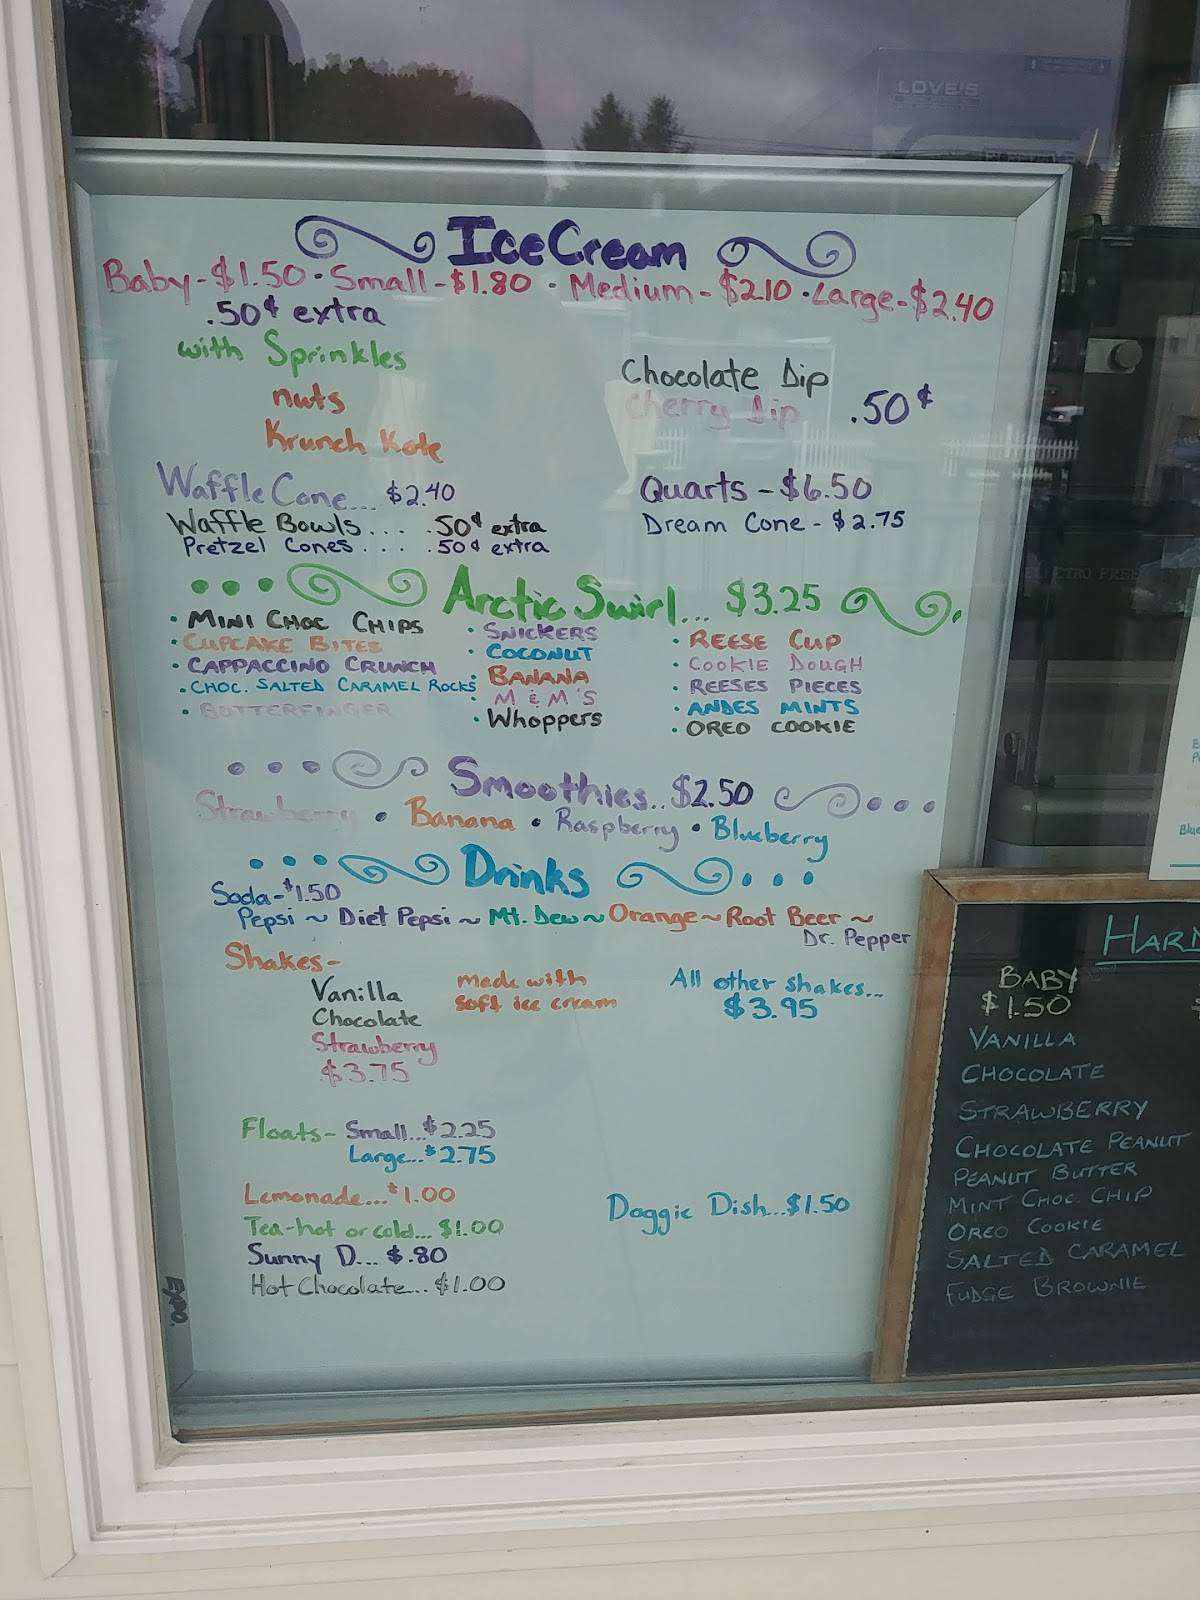 LOVE'S
IceCream
Baby-$1.50 · Small-$1.80 · Medium-$2.10 · Large-$2.40
.50¢ extra
with Sprinkles
nuts
Krunch Kote
Chocolate Dip
Cherry Dip .50¢
Waffle Cone... $2.40
Waffle Bowls.... .50¢ extra
Pretzel Cones.... .50¢ extra
Quarts-$6.50
Dream Cone-$2.75
Arctic Swirl... $3.25
· MINI CHOC CHIPS
· CUPCAKE BITES
· CAPPACCINO CRUNCH
· CHOC. SALTED CARAMEL ROCKS
· BUTTERFINGER
· SNICKERS
· COCONUT
· BANANA
· M & M'S
· Whoppers
· REESE CUP
· COOKIE DOUGH
· REESES PIECES
· ANDES MINTS
· OREO COOKIE
Smoothies..$2.50
Strawberry • Banana • Raspberry • Blueberry
Drinks
Soda-$1.50
Pepsi ~ Diet Pepsi ~ Mt. Dew ~ Orange ~ Root Beer ~
Dr. Pepper
Shakes-
Vanilla
Chocolate
Strawberry
$3.75
made with
soft ice cream
All other shakes...
$3.95
Floats- Small...$2.25
Large...$2.75
Lemonade...$1.00
Tea-hot or cold...$1.00
Sunny D...$.80
Hot Chocolate...$1.00
Doggie Dish...$1.50
EXPO.
BABY
$1.50
VANILLA
CHOCOLATE
STRAWBERRY
CHOCOLATE PEANUT
PEANUT BUTTER
MINT CHOC. CHIP
OREO COOKIE
SALTED CARAMEL
FUDGE BROWNIE